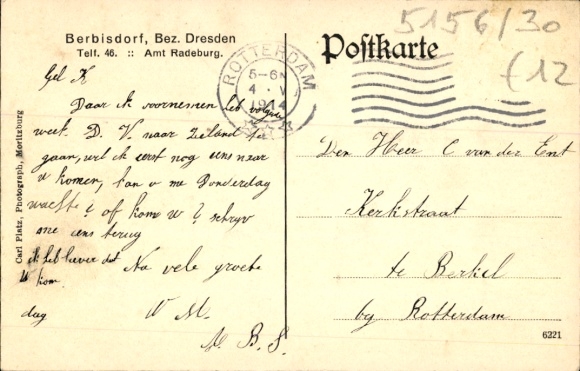 Berbisdorf, Bez. Dresden
Telf. 46. :: Amt Radeburg.
Postkarte
5156/30
£12
ROTTERDAM
5-6N
4 V
1914
Gel K
Daar ik voornemen heb volgende
week D. V. naar Zeeland te
gaan, wil ik eerst nog eens naar
u komen, kan u me Donderdag
wachten of kom u? schryv
me eens terug
ik heb liever dat
u kom.
Na vele groete
dag
U M.
M. B. S.
Den Heer C van der Ent
Kerkstraat
te Berkel
by Rotterdam
Carl Platz, Photograph, Moritzburg
6221